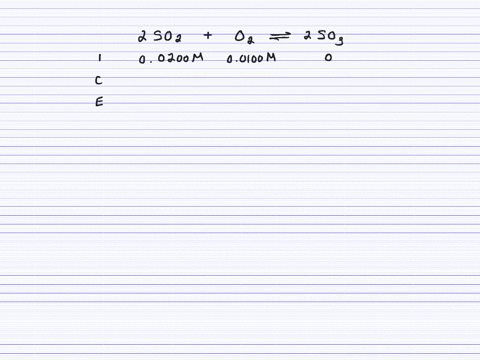 2 SO₂ + O₂ ⇌ 2 SO₃
I 0.0200M 0.0100M 0
C
E